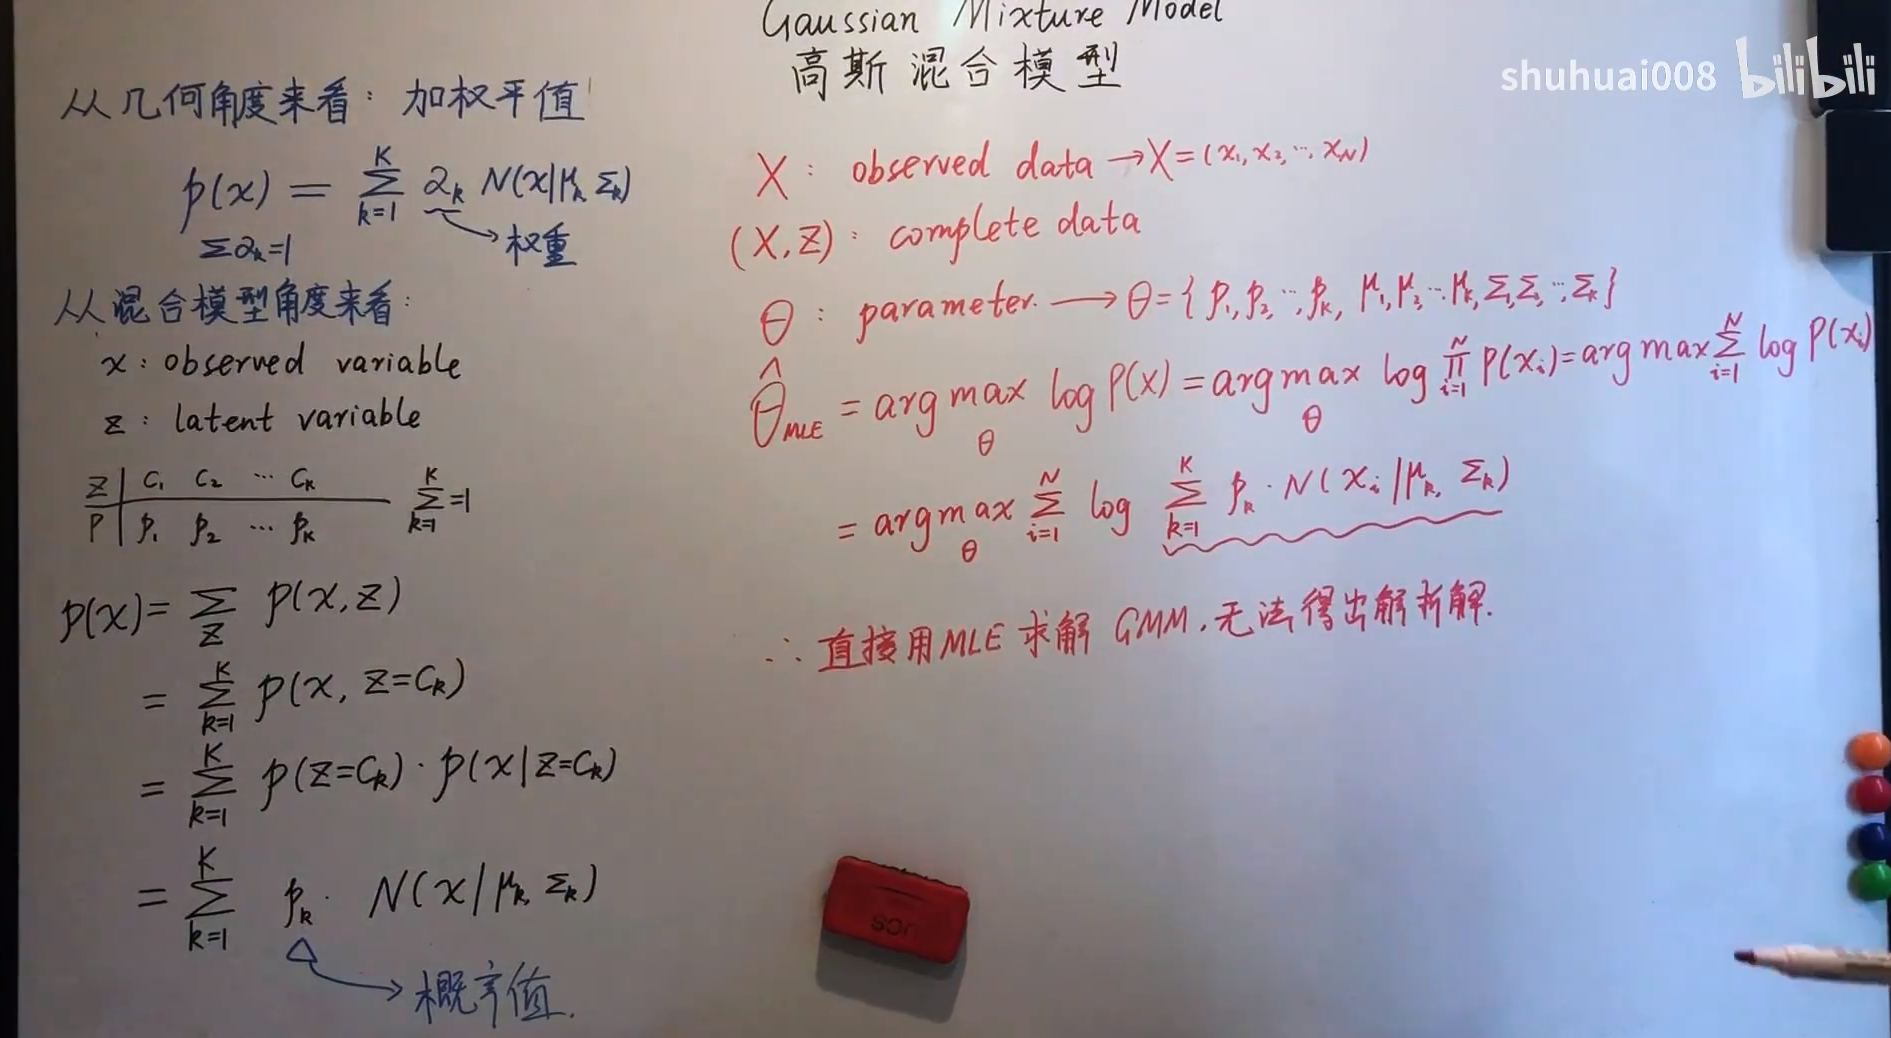 Gaussian Mixture Model
高斯混合模型
shuhuai008 bilibili
从几何角度来看: 加权平值
p(x) = ∑_{k=1}^{K} α_k N(x|μ_k, Σ_k)
∑α_k=1 → 权重
从混合模型角度来看:
x: observed variable
z: latent variable
z | C₁ C₂ ⋯ C_k
p | p₁ p₂ ⋯ p_k ∑_{k=1}^{K}=1
p(x) = ∑_z p(x,z)
= ∑_{k=1}^{K} p(x, z=C_k)
= ∑_{k=1}^{K} p(z=C_k)·p(x|z=C_k)
= ∑_{k=1}^{K} p_k · N(x|μ_k, Σ_k)
→ 概率值.
X: observed data → X=(x₁, x₂, ⋯, x_N)
(X, Z): complete data
θ: parameter. → θ={p₁, p₂, ⋯, p_k, μ₁, μ₂, ⋯ μ_k, Σ₁, Σ₂, ⋯, Σ_k}
θ̂_MLE = arg max_θ log P(X) = arg max_θ log ∏_{i=1}^{N} P(x_i) = arg max ∑_{i=1}^{N} log P(x_i)
= arg max_θ ∑_{i=1}^{N} log ∑_{k=1}^{K} p_k · N(x_i|μ_k, Σ_k)
∴ 直接用MLE求解 GMM, 无法得出解析解.